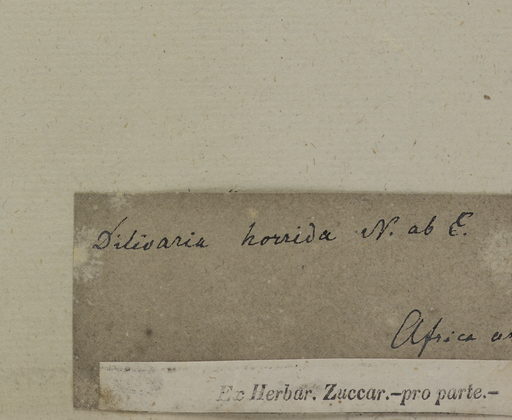 Dilivaria horrida N. ab E.
Africa
Ex Herbar. Zuccar.-pro parte.-